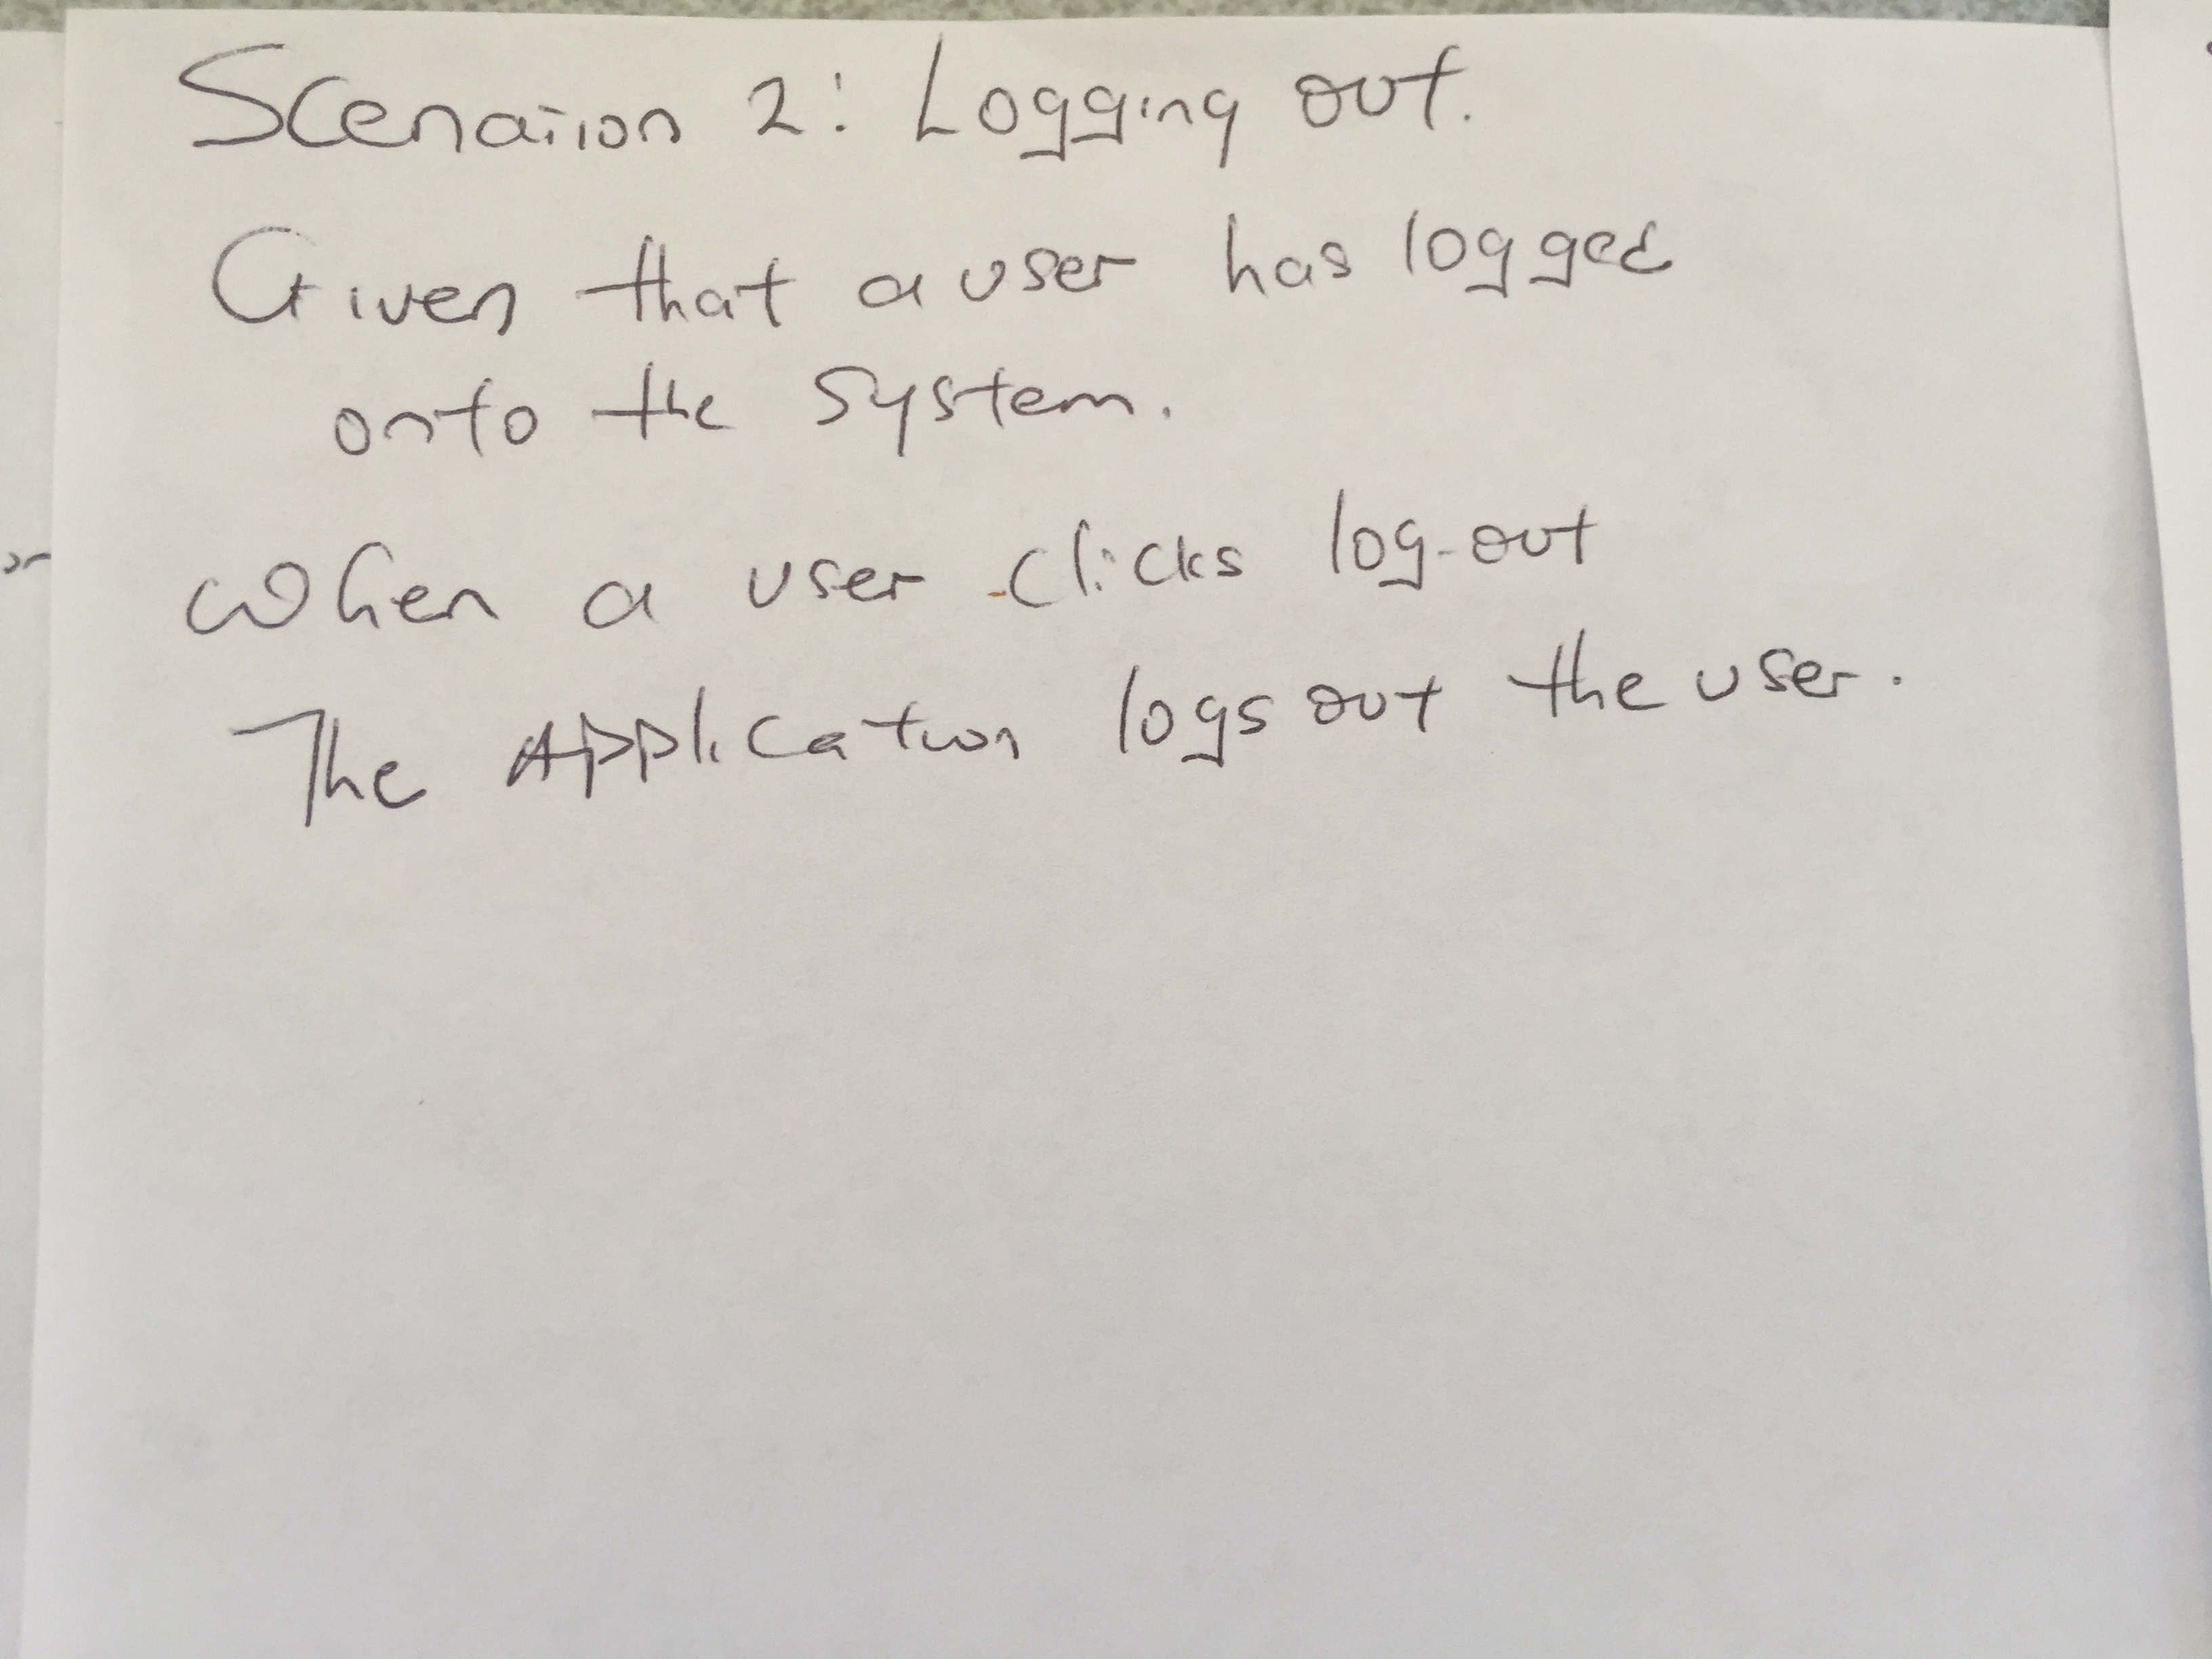 Scenarion 2: Logging out.
Given that a user has logged
onto the system.
When a user clicks log-out
The Application logs out the user.